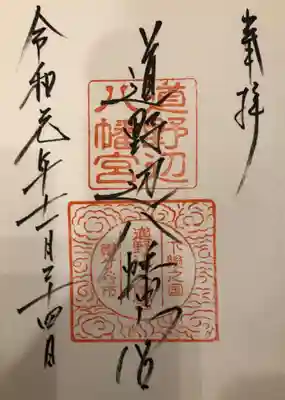 奉拝
道野辺八幡宮
道野辺
八幡宮
下総之国
道野辺
鎌ケ谷市
令和元年十一月二十四日